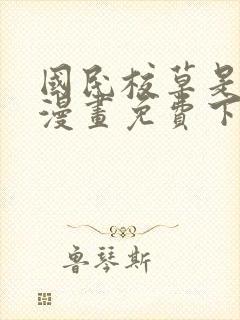 國民校草是
漫畫免費下
魯琴斯